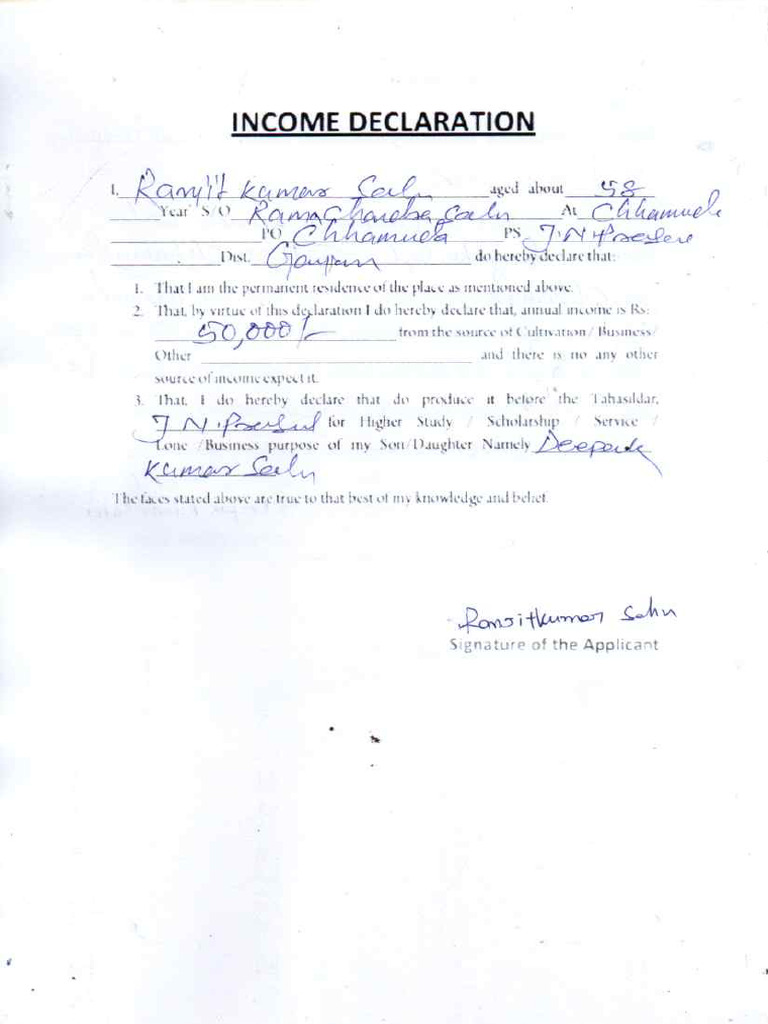 INCOME DECLARATION
I, Ranjit Kumar Sahu aged about 58
Year S/O Rama Chandra Sahu At Chhamunda
PO Chhamunda PS J.N. Prasad
Dist. Ganjam do hereby declare that:
1. That I am the permanent residence of the place as mentioned above.
2. That, by virtue of this declaration I do hereby declare that, annual income is Rs:
50,000/- from the source of Cultivation/ Business/
Other and there is no any other
source of income expect it.
3. That, I do hereby declare that do produce it before the Tahasildar,
J.N. Prasad for Higher Study / Scholarship / Service /
Lone /Business purpose of my Son/Daughter Namely Deepak
Kumar Sahu
The faces stated above are true to that best of my knowledge and belief.
Ranjitkumar Sahu
Signature of the Applicant